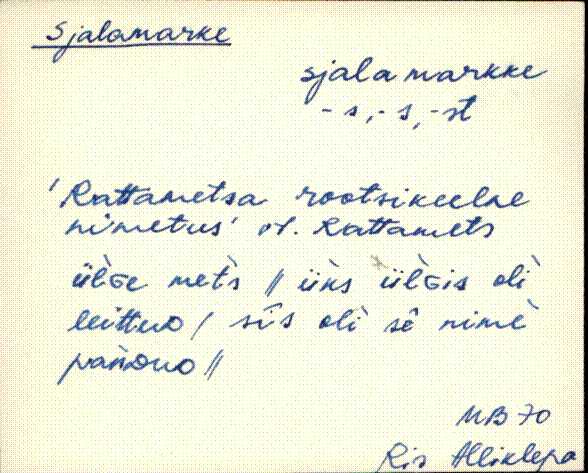 Sjalamarke
sjalamarkke
-s, -s, -st
'Rattametsa rootsikeelne
nimetus' vt. Rattamets
üĺGe mets // üks üĺGis oli
leittuD / sîs oli sê nime
panDuD //
MB 70
Ris Alliklepa